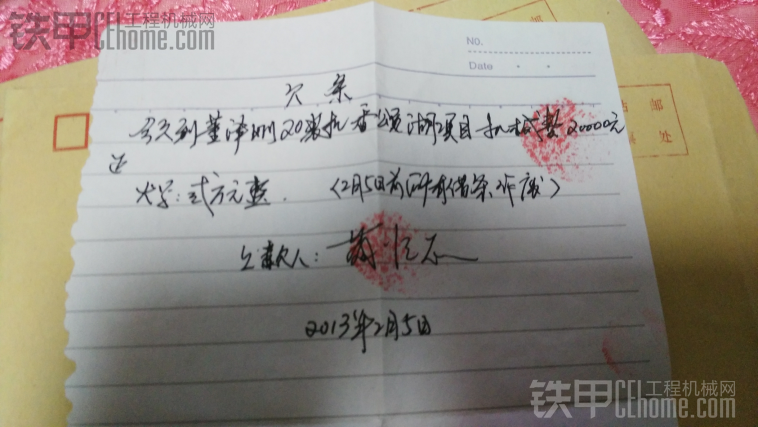 铁甲 工程机械网
CEhome.com
No.
Date
邮
处
欠条
今欠到董泽刚20装机香颂湖项目机械费20000元
大写：弍万元整. （2月5日前所有借条作废）
欠款人：
2013年2月5日
铁甲 工程机械网
CEhome.com